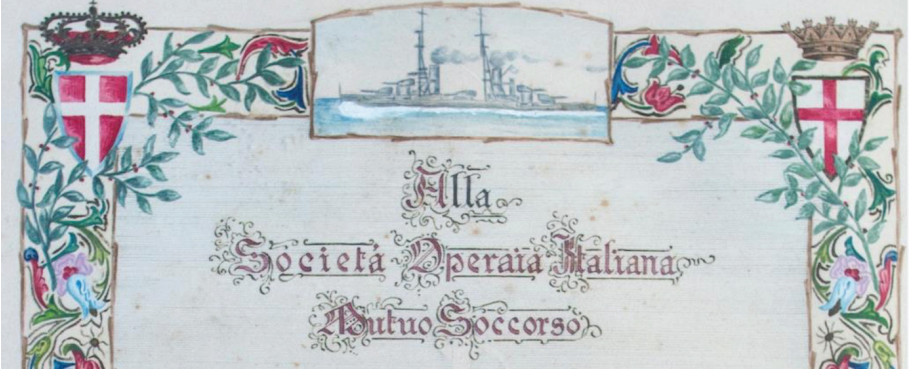 Alla
Società Operaia Italiana
Mutuo Soccorso